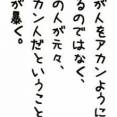 が人をアカンように
るのではなく、
の人が元々、
カン人だということ
が暴く。